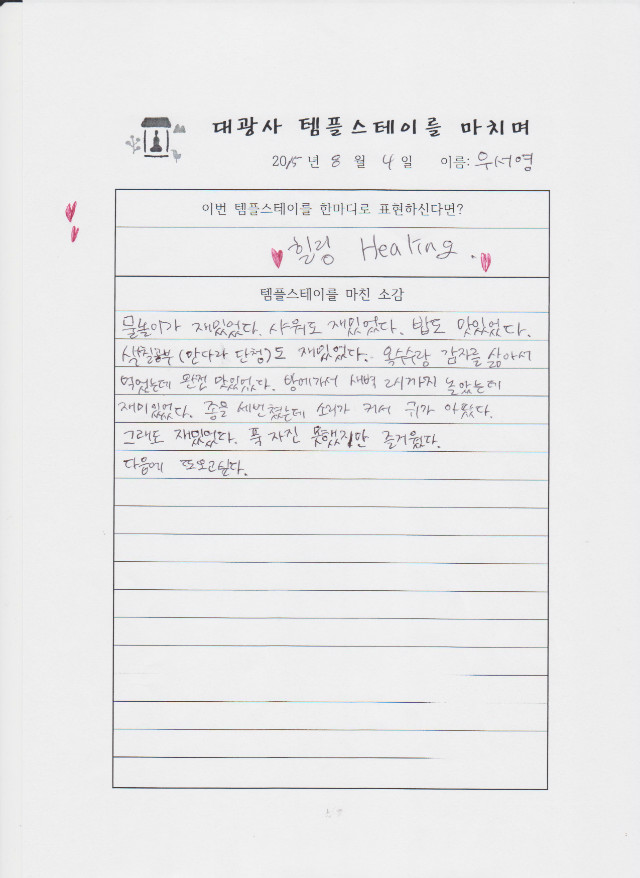 대광사 템플스테이를 마치며
2015 년 8 월 4 일 이름: 우서영
이번 템플스테이를 한마디로 표현하신다면?
힐링 Healing.
템플스테이를 마친 소감
물놀이가 재밌었다. 샤워도 재밌었다. 밥도 맛있었다.
색칠공부 (만다라 단청)도 재밌었다. 옥수수랑 감자를 삶아서
먹었는데 완전 맛있었다. 방에가서 새벽 2시까지 놀았는데
재미있었다. 종을 세번 쳤는데 소리가 커서 귀가 아팠다.
그래도 재밌었다. 푹 자진 못했지만 즐거웠다.
다음에 또오고싶다.